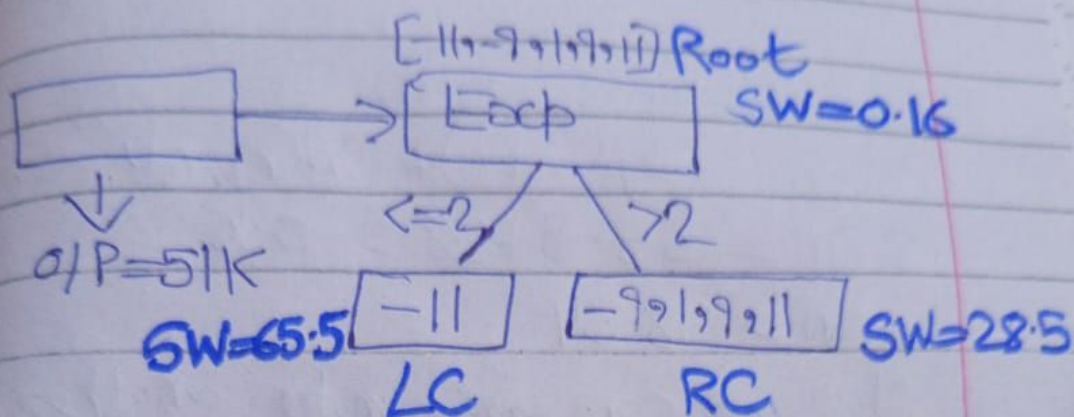 [-11,-9,1,9,11] Root
Exp SW=0.16
<=2 >2
O/P=51K
SW=65.5 -11 -9,1,9,11 SW=28.5
LC RC